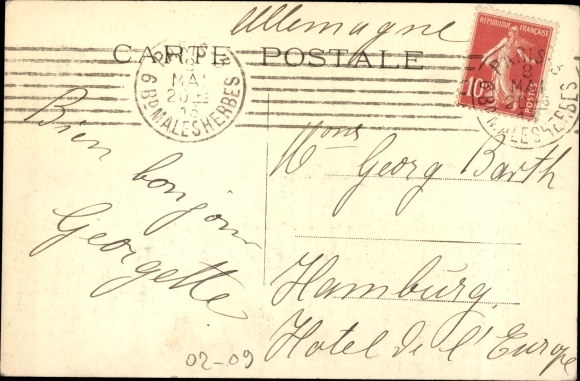 Allemagne
CARTE POSTALE
RÉPUBLIQUE FRANÇAISE
10c
POSTES
PARIS
MAI
6 Bd MALESHERBES
PARIS
6 Bd MALESHERBES
Bien bonjour
Georgette
Mons
Georg Barth
Hamburg
Hotel de l'Europe
02-09